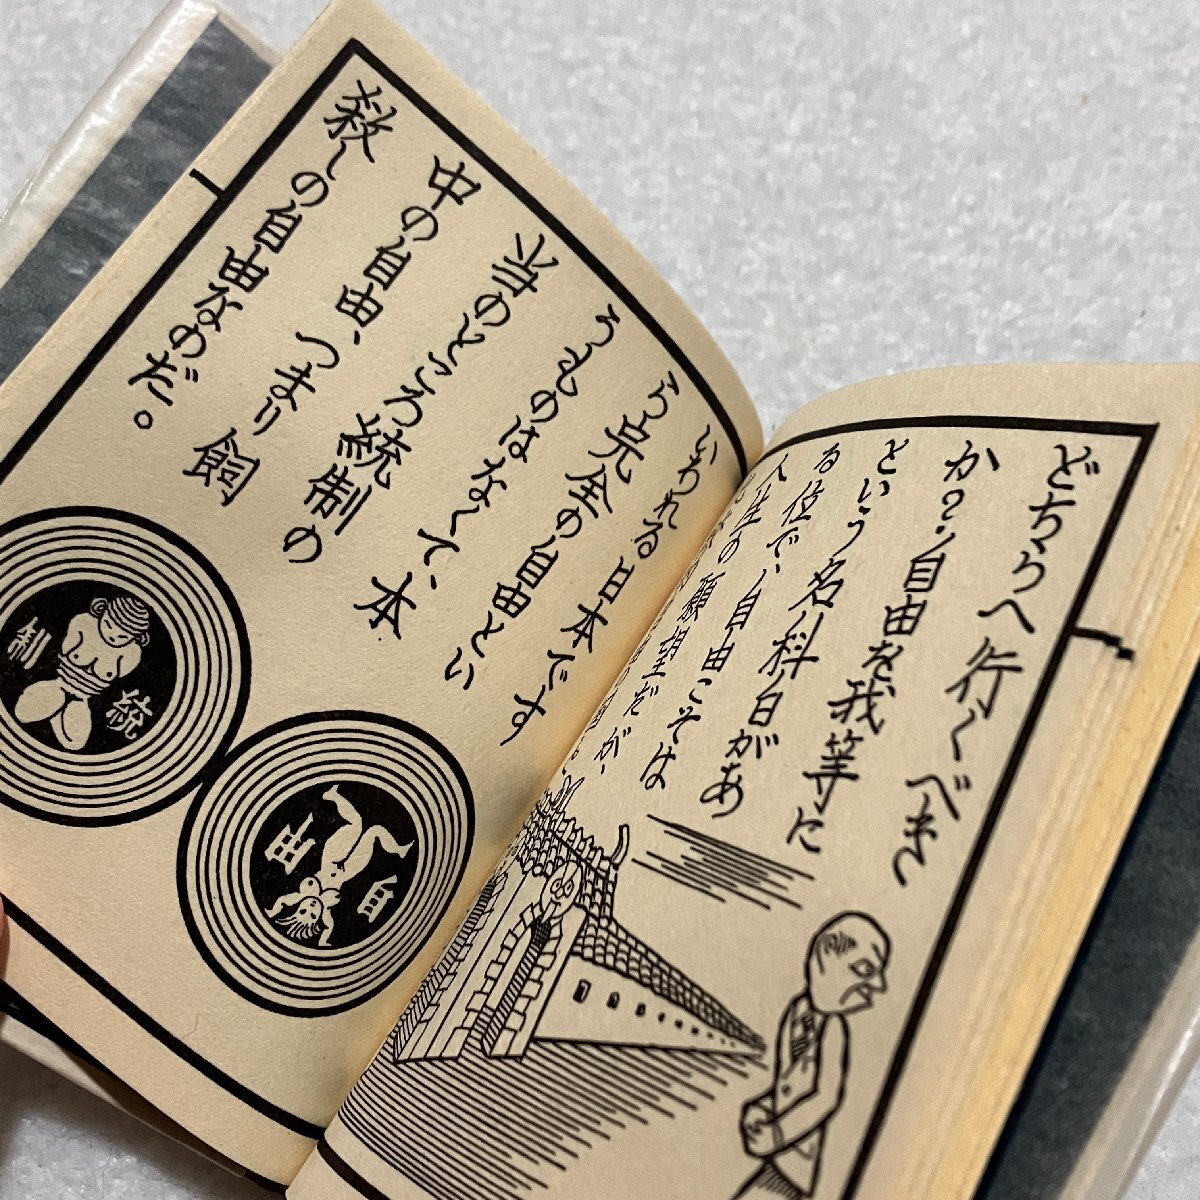 どちらへ行くべき
か?!自由を我等に
という名科白があ
る位で、自由こそは
人生の願望だが、
いわれる日本です
ら完全の自由とい
うものはなくて、本
当のところ統制の
中の自由、つまり飼
殺しの自由なのだ。
自由
統制